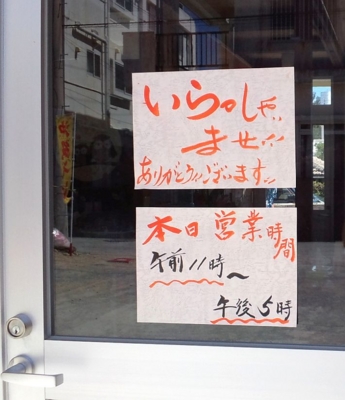 いらっしゃい
ませ!!
ありがとうございます。
本日営業時間
午前11時〜
午後5時